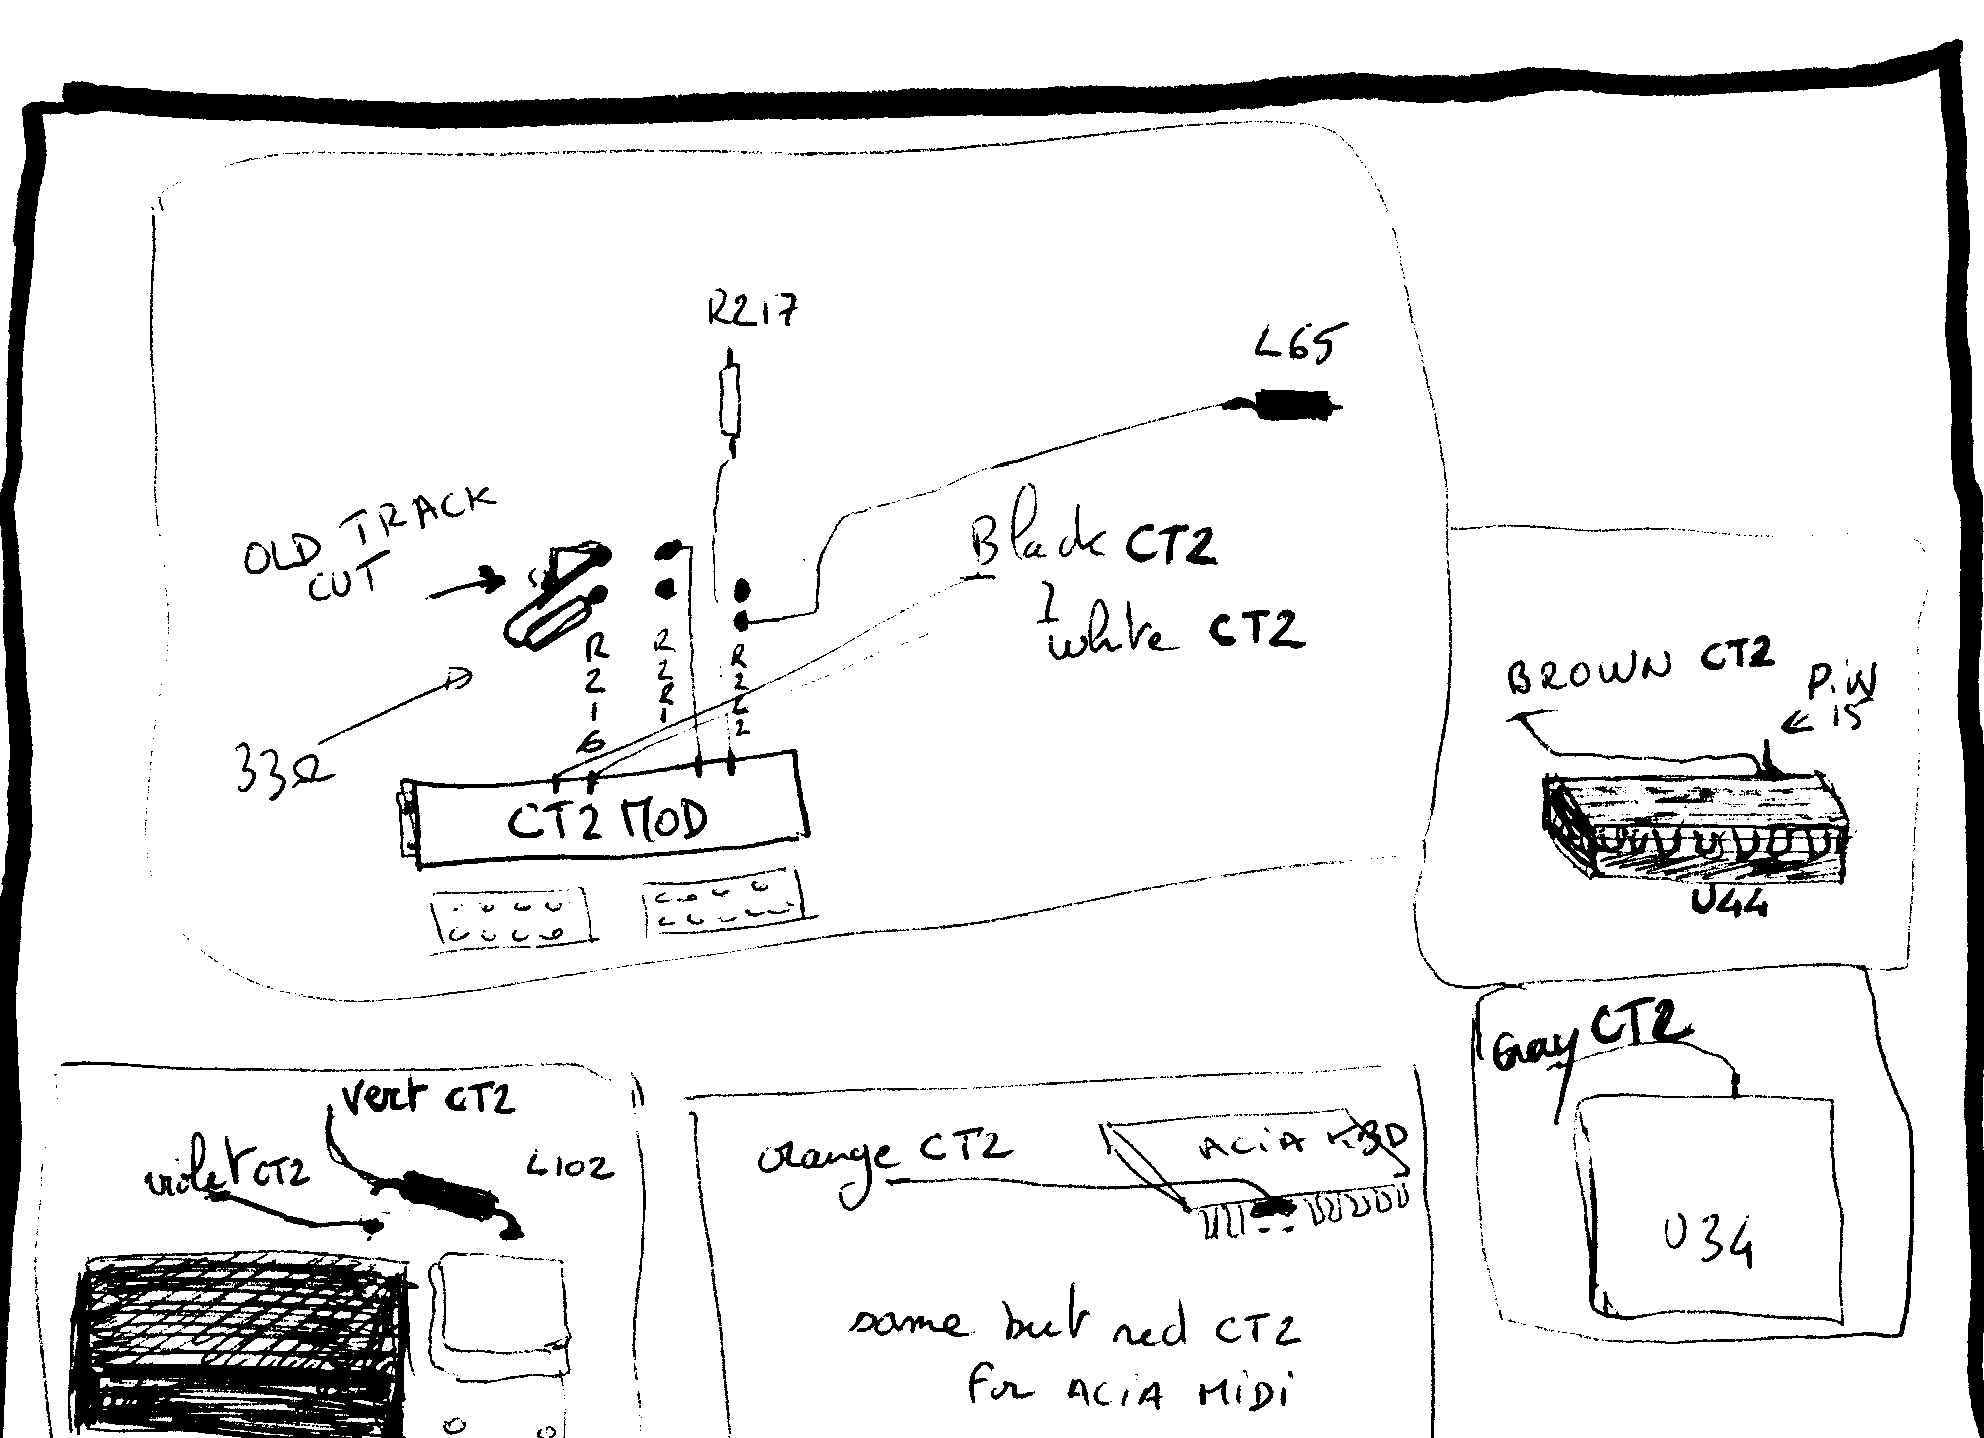 R217
L65
OLD TRACK
CUT
Black CT2
white CT2
R216
R222
33Ω
CT2 MOD
BROWN CT2
PiN
15
U44
Gray CT2
U34
vert CT2
violet CT2
L102
orange CT2
ACiA KBD
same but red CT2
For ACiA MiDi